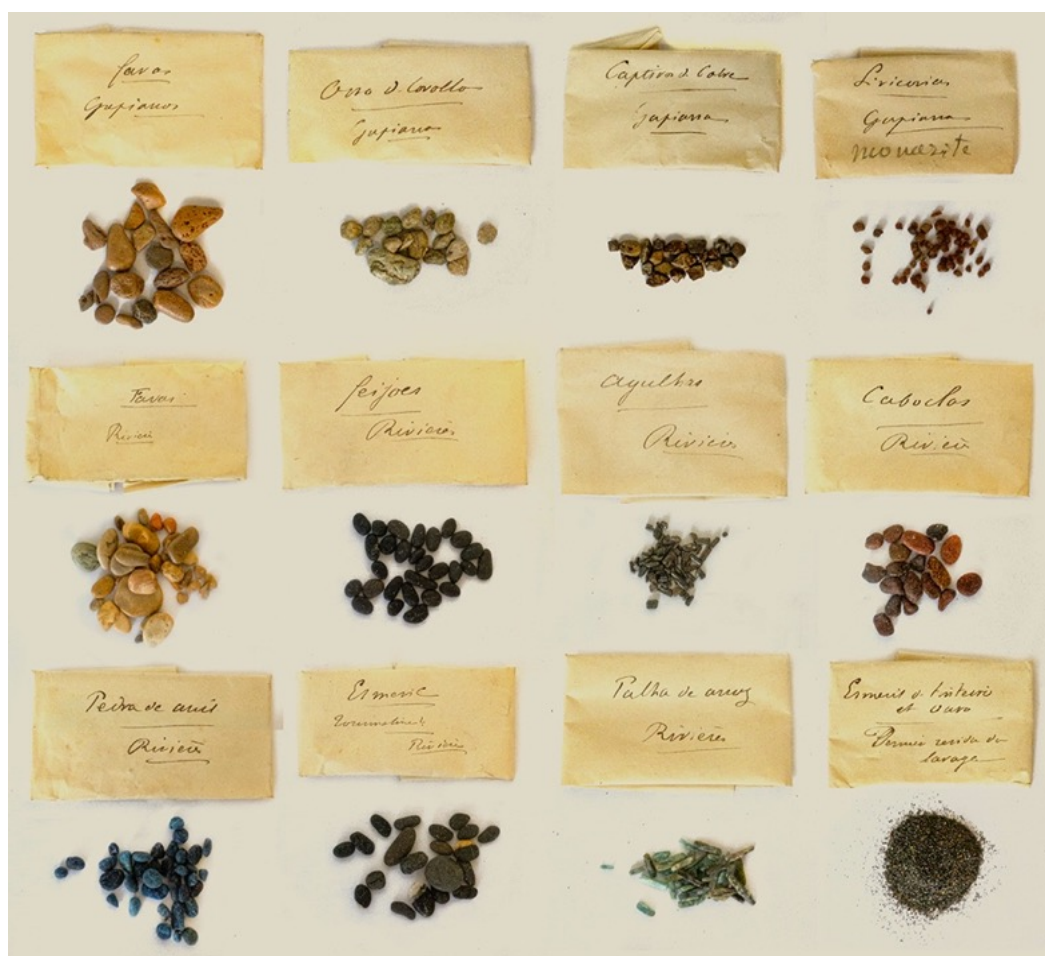 favas
Gupiaras
Ovo d. Cavallo
Gupiaras
Captivo d. Cobre
Gupiaras
Siricorias
Gupiaras
monazite
Favas
Rivière
feijoes
Rivières
Agulhas
Rivières
Caboclos
Rivière
Pedra de anil
Rivières
Esmeril
Tourmaline
Rivières
Palha de arroz
Rivières
Esmeril d.
et ouro
Dernier residu du
lavage